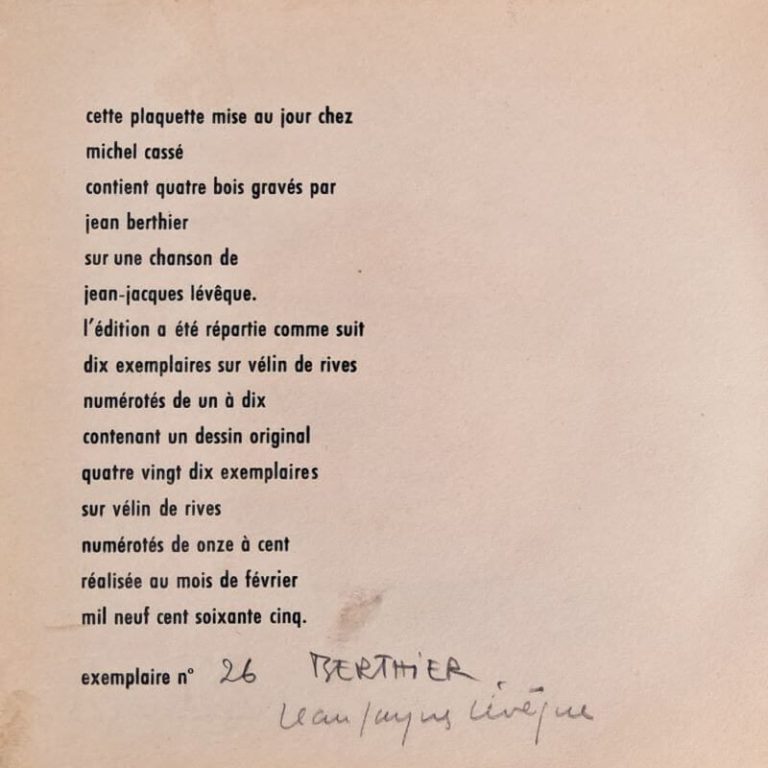 cette plaquette mise au jour chez
michel cassé
contient quatre bois gravés par
jean berthier
sur une chanson de
jean-jacques lévêque.
l'édition a été répartie comme suit
dix exemplaires sur vélin de rives
numérotés de un à dix
contenant un dessin original
quatre vingt dix exemplaires
sur vélin de rives
numérotés de onze à cent
réalisée au mois de février
mil neuf cent soixante cinq.
exemplaire n° 26 BERTHIER
Jean Jacques Lévêque